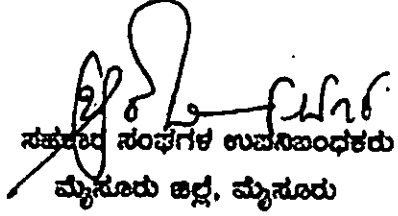 ಸಹಕಾರ ಸಂಘಗಳ ಉಪನಿಬಂಧಕರು
ಮೈಸೂರು ಜಿಲ್ಲೆ, ಮೈಸೂರು